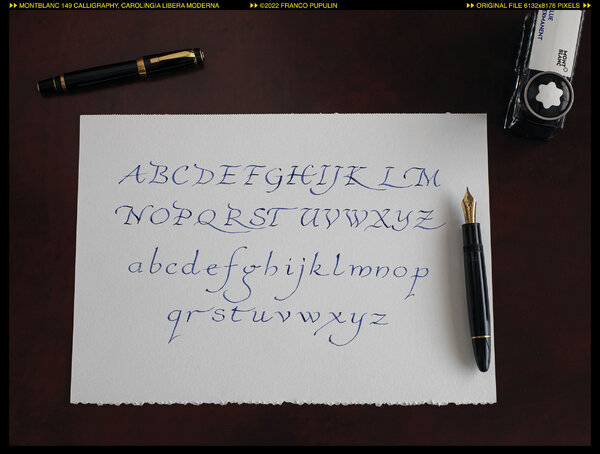 ▸▸ MONTBLANC 149 CALLIGRAPHY, CAROLINGIA LIBERA MODERNA ▸▸ ©2022 FRANCO PUPULIN ▸▸ ORIGINAL FILE 6132x8176 PIXELS ▸▸
BLUE
PERMANENT
MONT
BLANC
ABCDEFGHIJK LM
NOPQRST UVWXYZ
abcdefghijklmnop
qrstuvwxyz